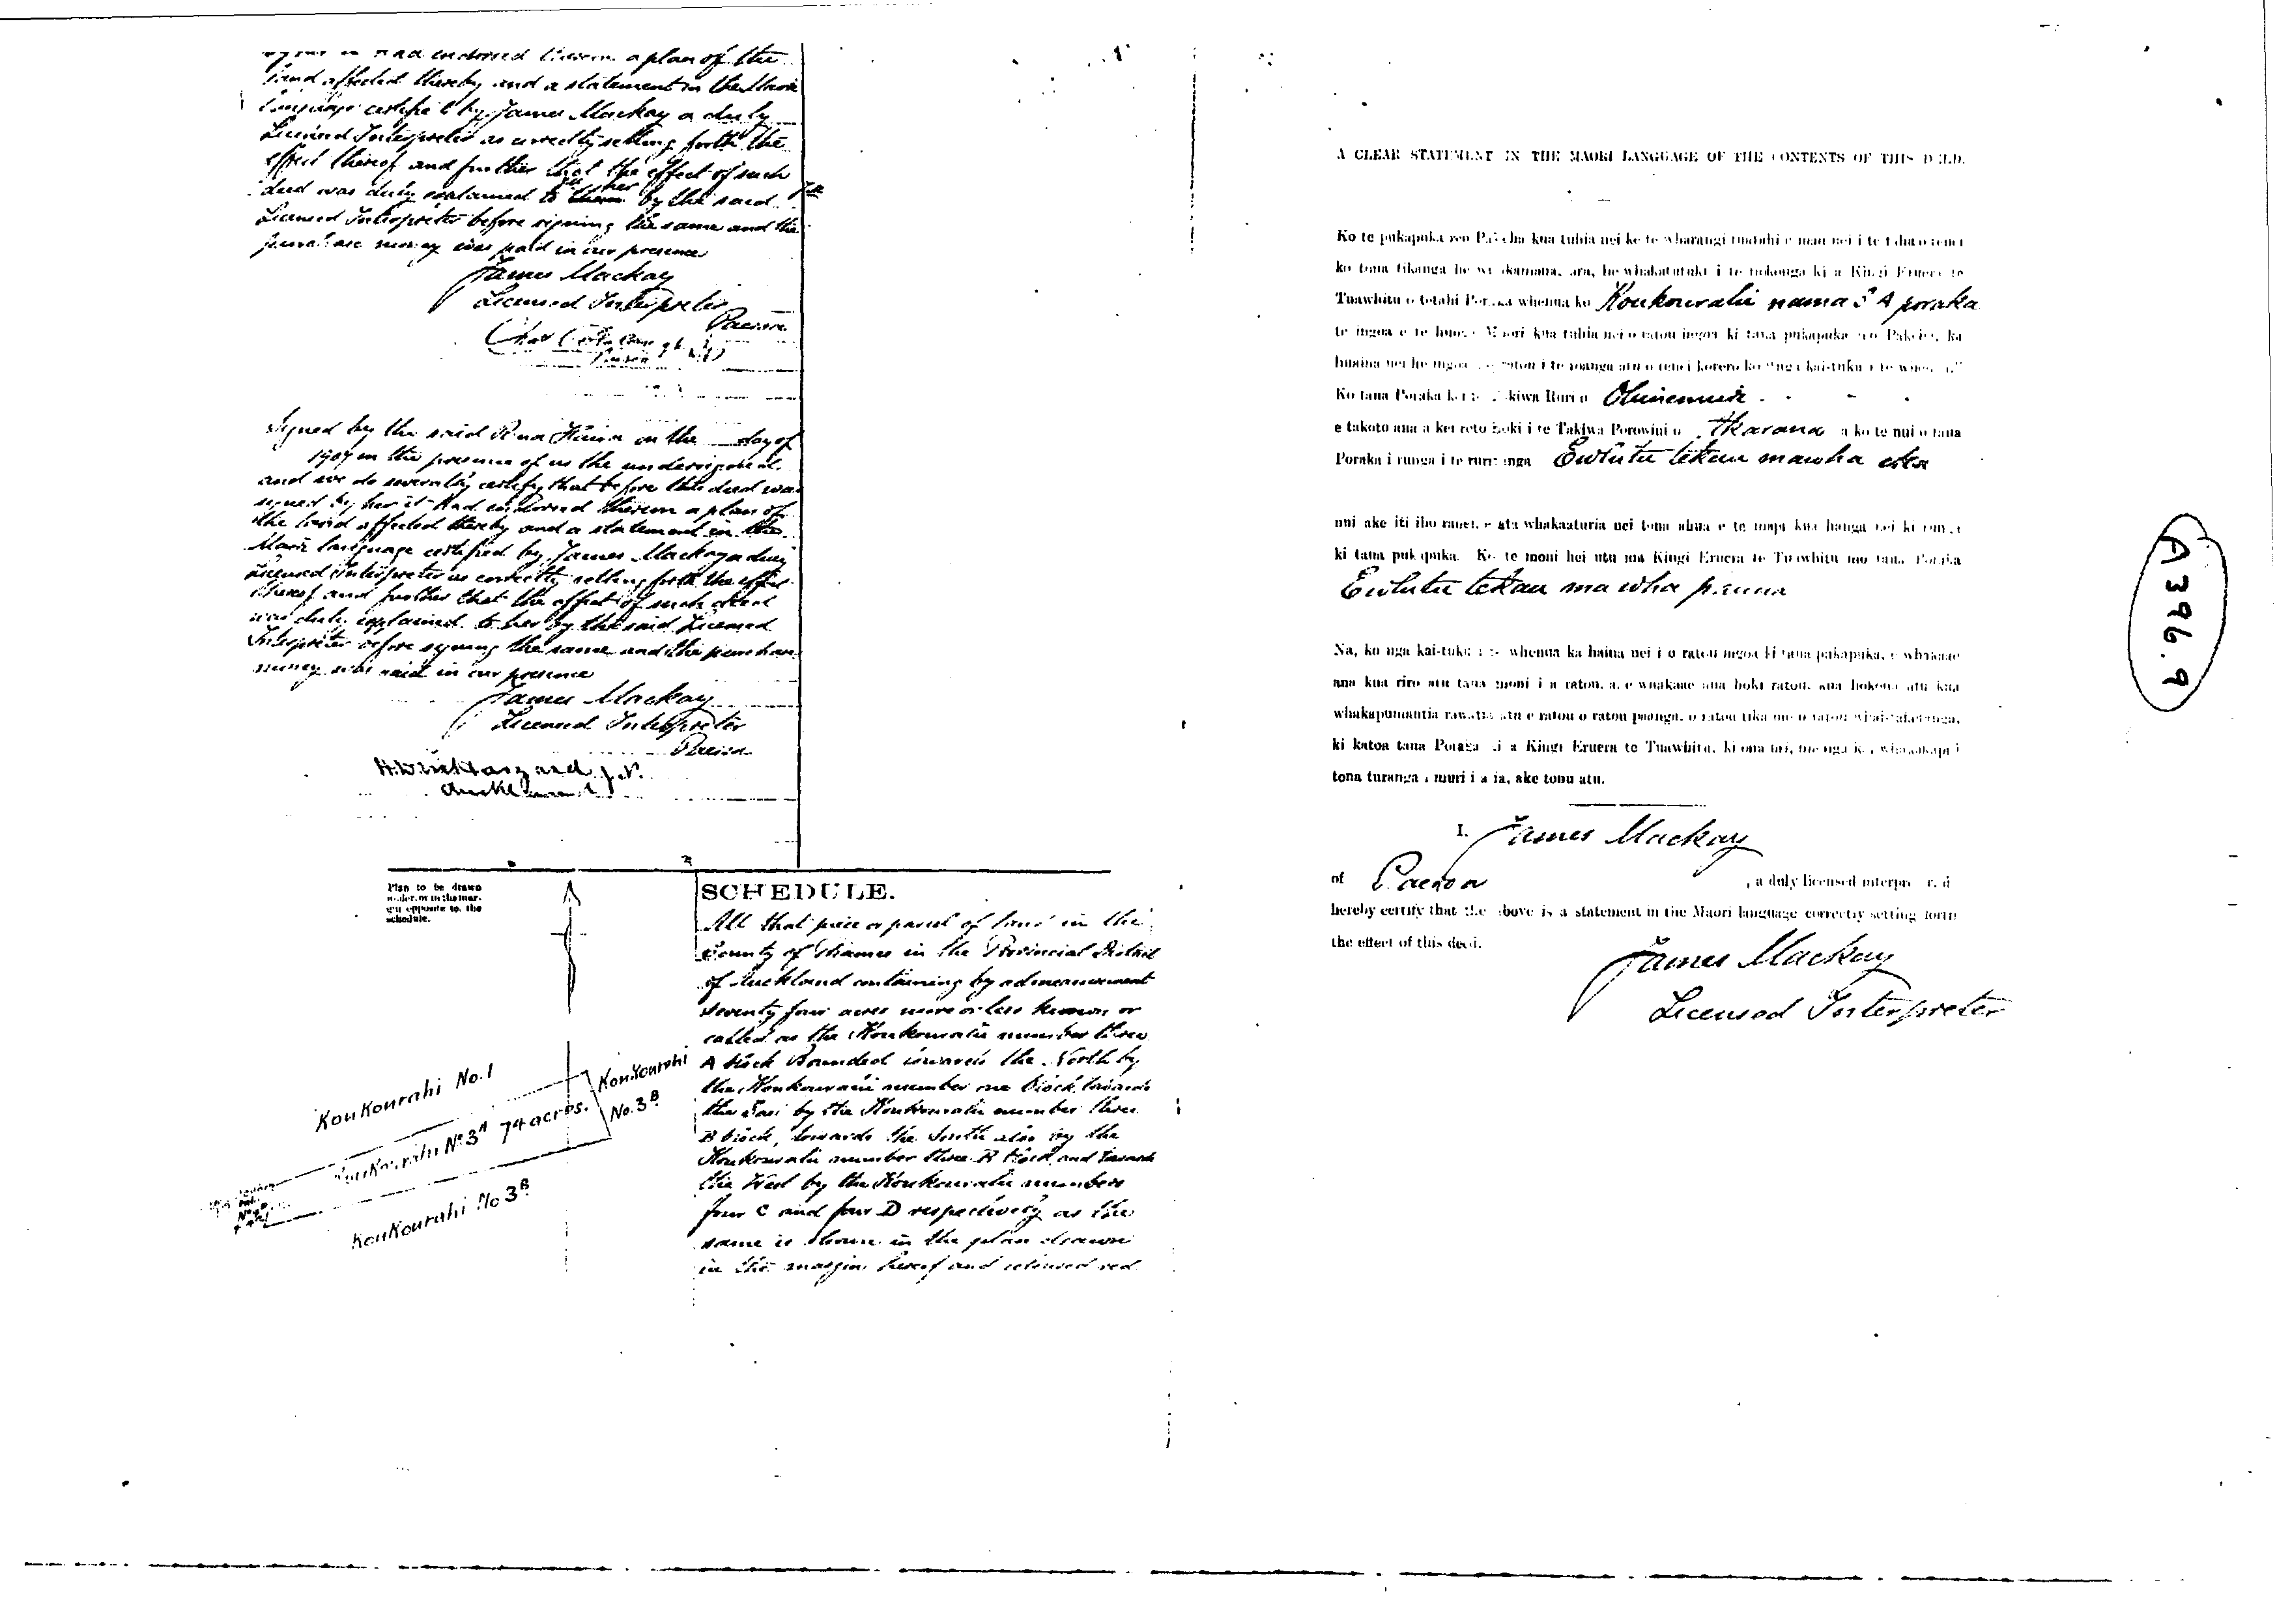 had endorsed a plan of the
land affected thereby and a statement in the Maori
language by James Mackay a duly
Licensed Interpreter as correctly setting forth the
effect thereof and further that the effect of such
deed was duly explained to by the said
Licensed Interpreter before signing the same and the
money was paid in our presence
James Mackay
Licensed Interpreter
Paeroa
Signed by the said on the day of
in the presence of us the undersigned
and we do severally certify that before this deed was
signed by her it had endorsed thereon a plan of
the land affected thereby and a statement in the
Maori language certified by James Mackay a duly
Licensed Interpreter as correctly setting forth the effect
thereof and further that the effect of such deed
was duly explained to her by the said Licensed
Interpreter before signing the same and the purchase
money was paid in our presence
James Mackay
Licensed Interpreter
Paeroa
Auckland
Plan to be drawn
under, or in the mar-
gin opposite to, the
schedule.
KouKourahi No. 1
KouKourahi No. 3A 74 acres.
KouKourahi
No. 3B
KouKourahi No 3B
SCHEDULE.
All that piece or parcel of land in the
County of Thames in the Provincial District
of Auckland containing by admeasurement
seventy four acres more or less known or
called as the Koukourahi number three
A block Bounded towards the North by
the Koukourahi number one block towards
the East by the Koukourahi number three
B block, towards the South also by the
Koukourahi number three B block and towards
the West by the Koukourahi numbers
four C and four D respectively as the
same is shown in the plan drawn
in the margin hereof and coloured red
A CLEAR STATEMENT IN THE MAORI LANGUAGE OF THE CONTENTS OF THIS DEED.
Ko te pukapuka reo Pakeha kua tuhia nei ke te wharangi tuatahi e mau nei i te o tenei
ko tona tikanga he whakamana, ara, he whakatutuki i te hokonga ki a Kingi Eruera te
Tuawhitu o tetahi Poraka whenua ko Koukourahi nama 3 A poraka
te ingoa e te hunga Maori kua tuhia nei o ratou ingoa ki taua pukapuka reo Pakeha, ka
huaina nei he ingoa ratou i te roanga atu o tenei korero ko "nga kai-tuku i te whenua."
Ko taua Poraka kei te Takiwa Ruri o Ohinemuri
e takoto ana a kei roto hoki i te Takiwa Porowini o Akarana a ko te nui o taua
Poraka i runga i te ruritanga Ewhitu tekau mawha eka
nui ake iti iho ranei, e ata whakaaturia nei tona ahua e te mapi kua hanga nei ki runga
ki taua pukapuka. Ko te moni hei utu ma Kingi Eruera te Tuawhitu mo taua Poraka
Ewhitu tekau ma wha pauna
Na, ko nga kai-tuku i te whenua ka haina nei i o ratou ingoa ki taua pukapuka, e whakaae
ana kua riro atu taua moni i a ratou, a, e whakaae ana hoki ratou, kua hokona atu kua
whakapumautia rawatia atu e ratou o ratou paanga, o ratou tika me o ratou
ki katoa taua Poraka ki a Kingi Eruera te Tuawhitu, ki ona uri, me nga kai whakakapi i
tona turanga i muri i a ia, ake tonu atu.
I, James Mackay
of Paeroa , a duly licensed interpreter, do
hereby certify that the above is a statement in the Maori language correctly setting forth
the effect of this deed.
James Mackay
Licensed Interpreter
A396.9